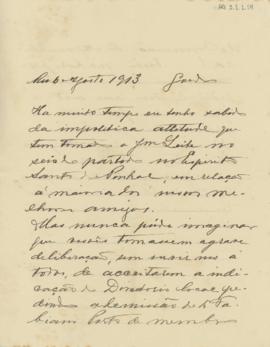 Rio 6 Agosto 1913
Ha muito tempo eu tenho sabido
da impolitica attitude que
tem tomado o Jm Leite no
seio do partido no Espirito
Santo do Pinhal, em relação
á maioria dos nossos me-
lhores amigos.
Mas nunca pude imaginar
que vocês tomassem a grave
deliberação, sem ouvirem a
todos, de acceitarem a indi-
cação do Directorio local pe-
dindo a demissão de
Porto de membro